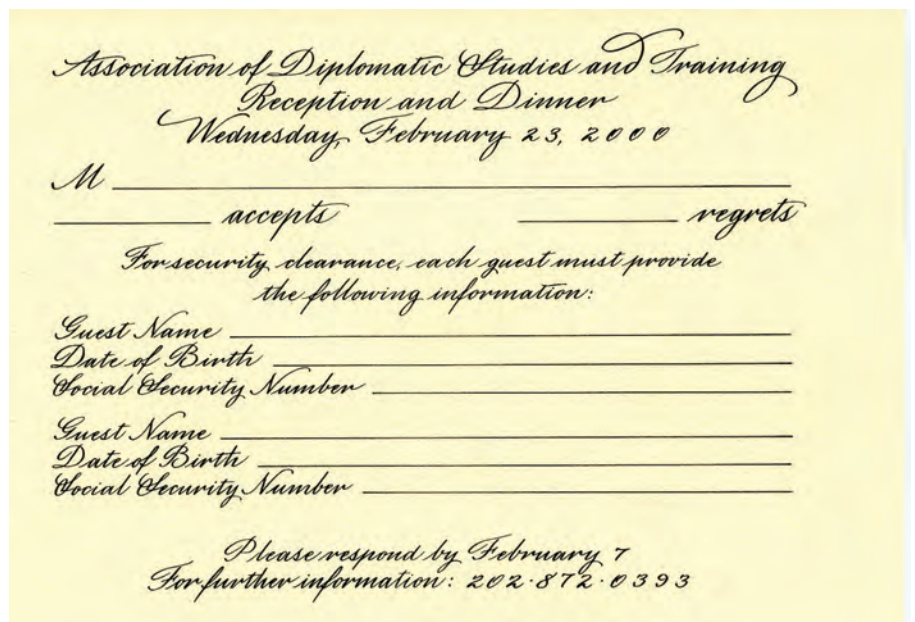 Association of Diplomatic Studies and Training
Reception and Dinner
Wednesday, February 23, 2000
M
accepts regrets
For security clearance, each guest must provide
the following information:
Guest Name
Date of Birth
Social Security Number
Guest Name
Date of Birth
Social Security Number
Please respond by February 7
For further information: 202·872·0393